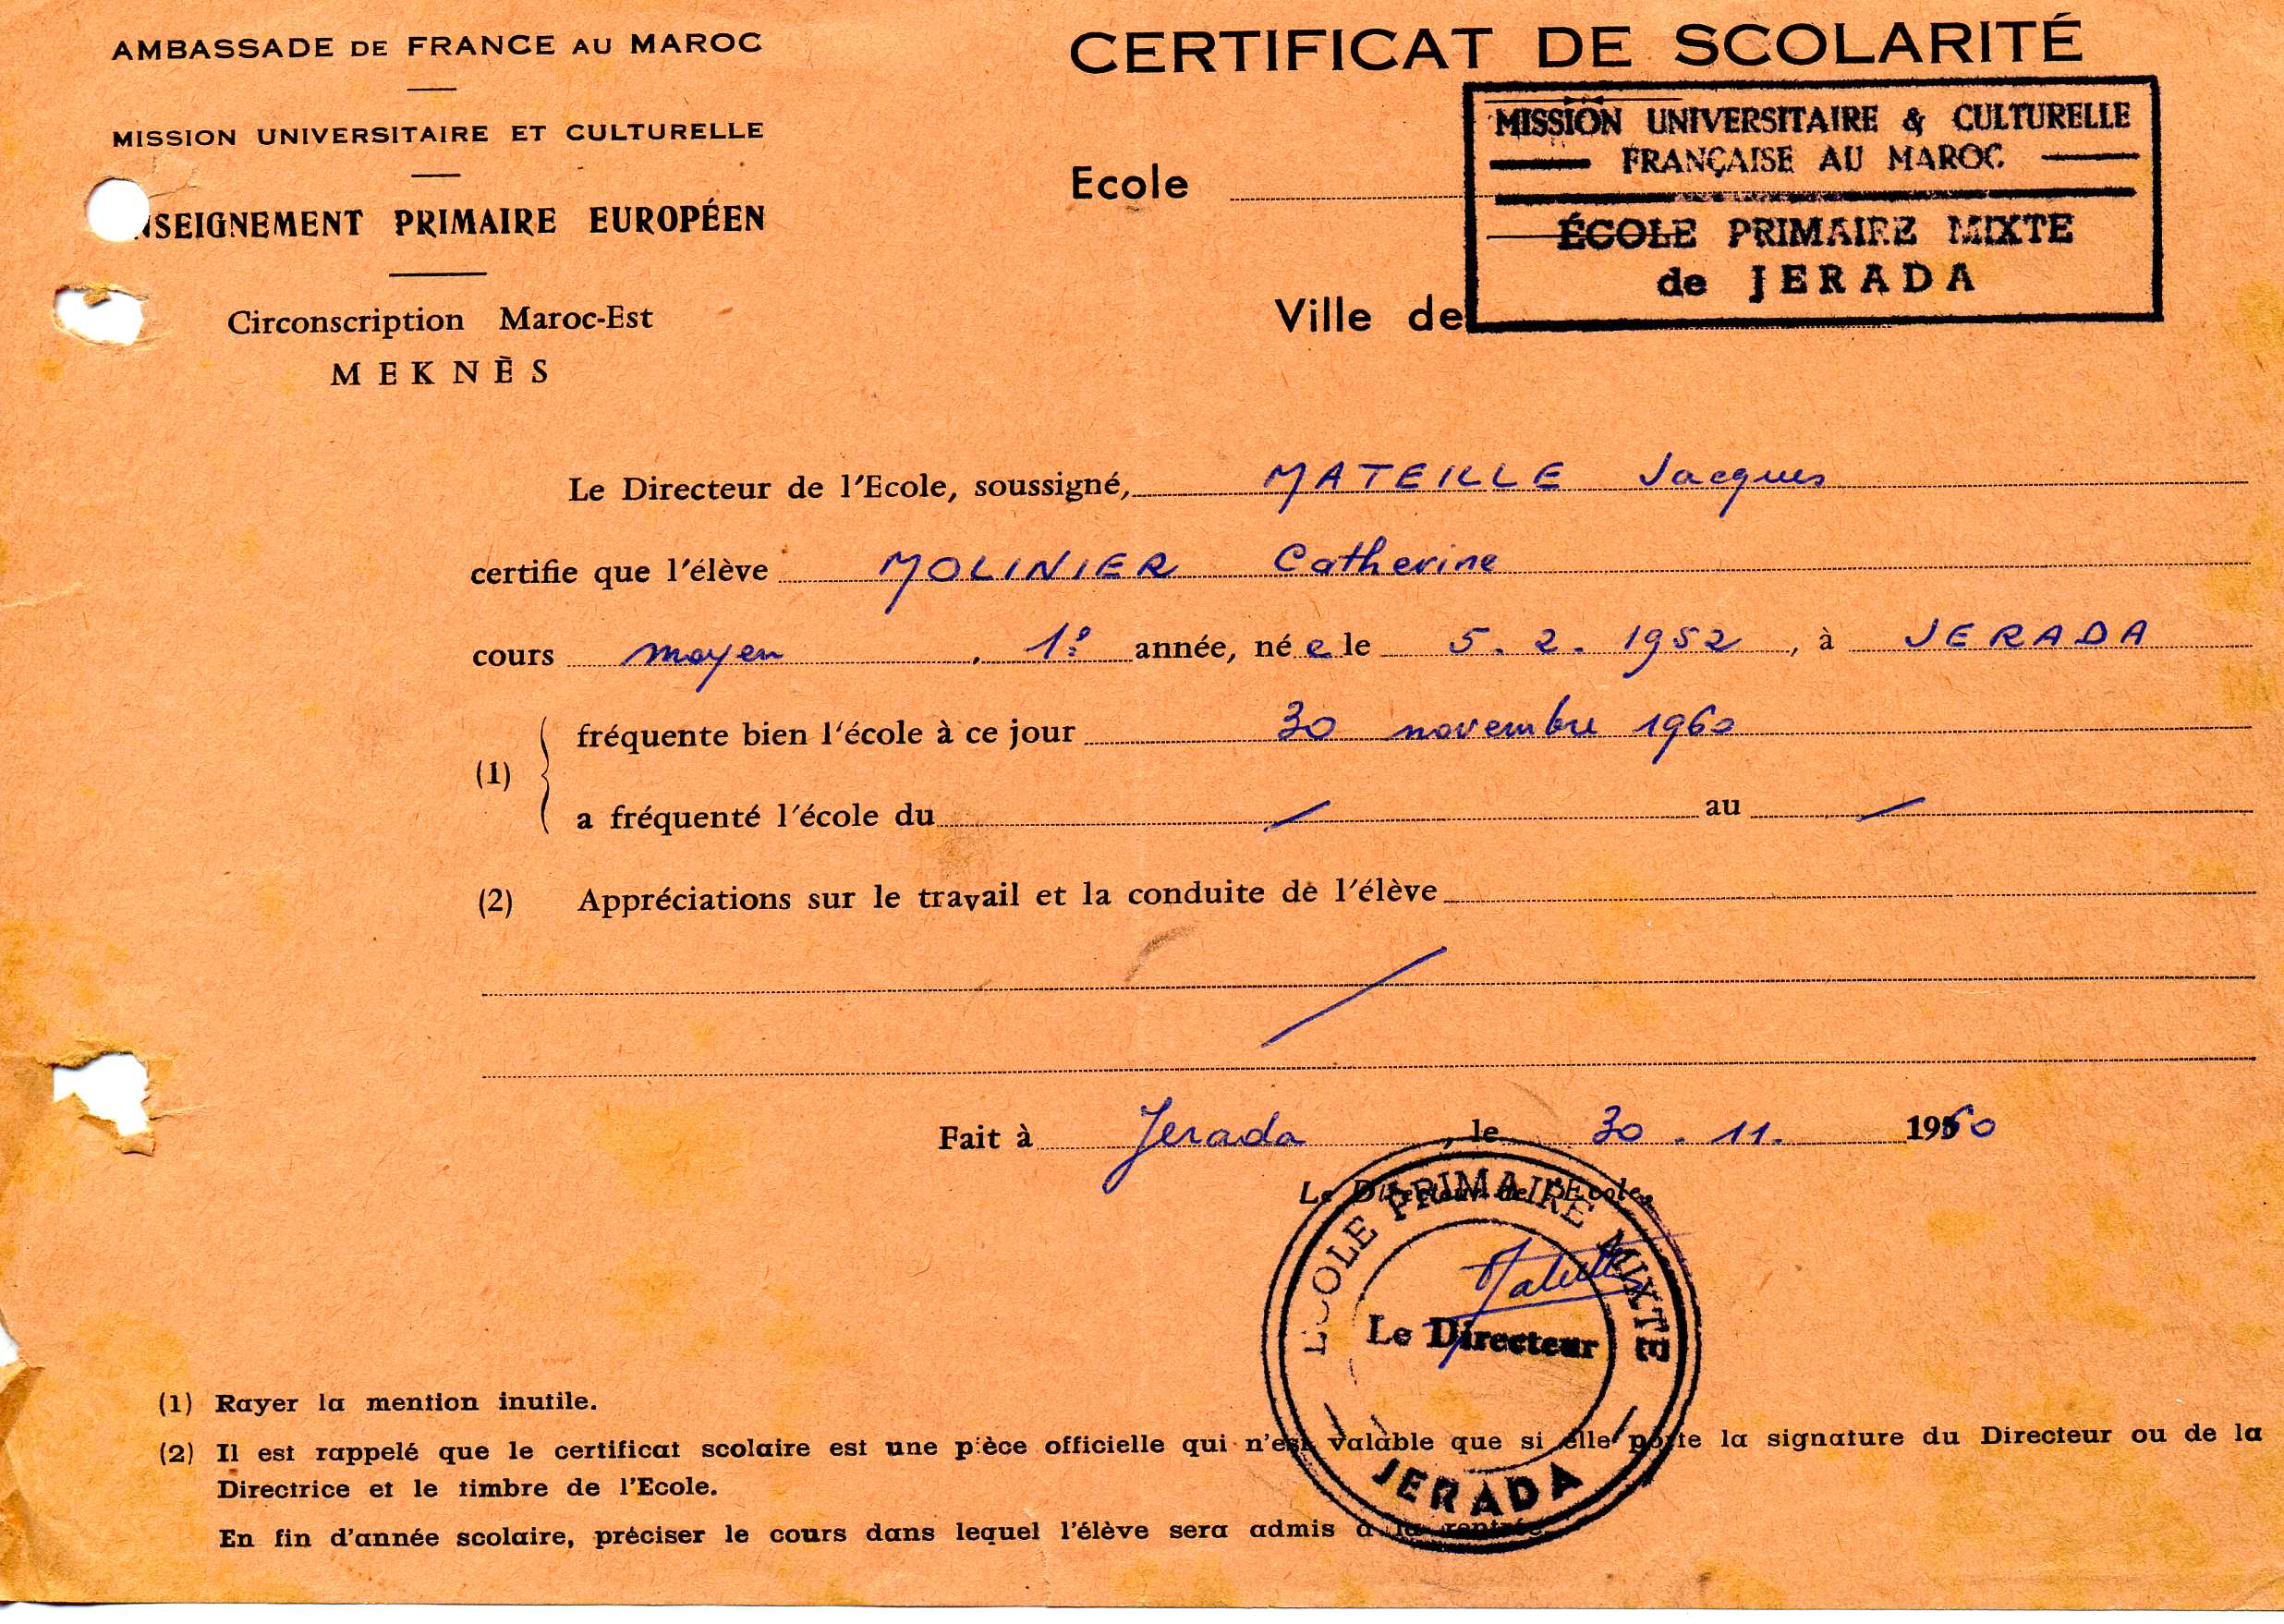 AMBASSADE DE FRANCE AU MAROC
MISSION UNIVERSITAIRE ET CULTURELLE
NSEIGNEMENT PRIMAIRE EUROPÉEN
Circonscription Maroc-Est
MEKNÈS
CERTIFICAT DE SCOLARITÉ
Ecole
Ville de
MISSION UNIVERSITAIRE & CULTURELLE
FRANÇAISE AU MAROC
ÉCOLE PRIMAIRE MIXTE
de JERADA
Le Directeur de l'Ecole, soussigné, MATEILLE Jacques
certifie que l'élève MOLINIER Catherine
cours moyen, 1e année, née le 5.2.1952, à JERADA
(1) fréquente bien l'école à ce jour 30 novembre 1960
a fréquenté l'école du / au /
(2) Appréciations sur le travail et la conduite de l'élève
/
Fait à Jerada, le 30.11. 1960
Le Directeur de l'Ecole,
ECOLE PRIMAIRE MIXTE
Le Directeur
JERADA
(1) Rayer la mention inutile.
(2) Il est rappelé que le certificat scolaire est une pièce officielle qui n'est valable que si elle porte la signature du Directeur ou de la
Directrice et le timbre de l'Ecole.
En fin d'année scolaire, préciser le cours dans lequel l'élève sera admis à la rentrée.